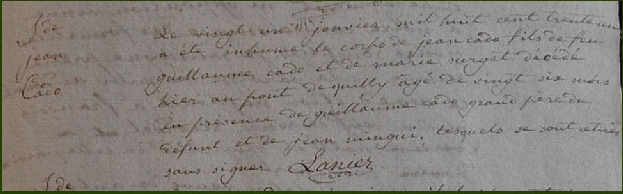 J de
jean
Cado
Le vingt un janvier mil huit cent trente un
a été inhumé le corps de jean cado fils de feu
guillaume cado et de marie surget décédé
hier au pont de quilly âgé de vingt six mois
en présence de guillaume cado grand père du
défunt et de jean, lesquels se sont retirés
sans signer. Lanier
J de